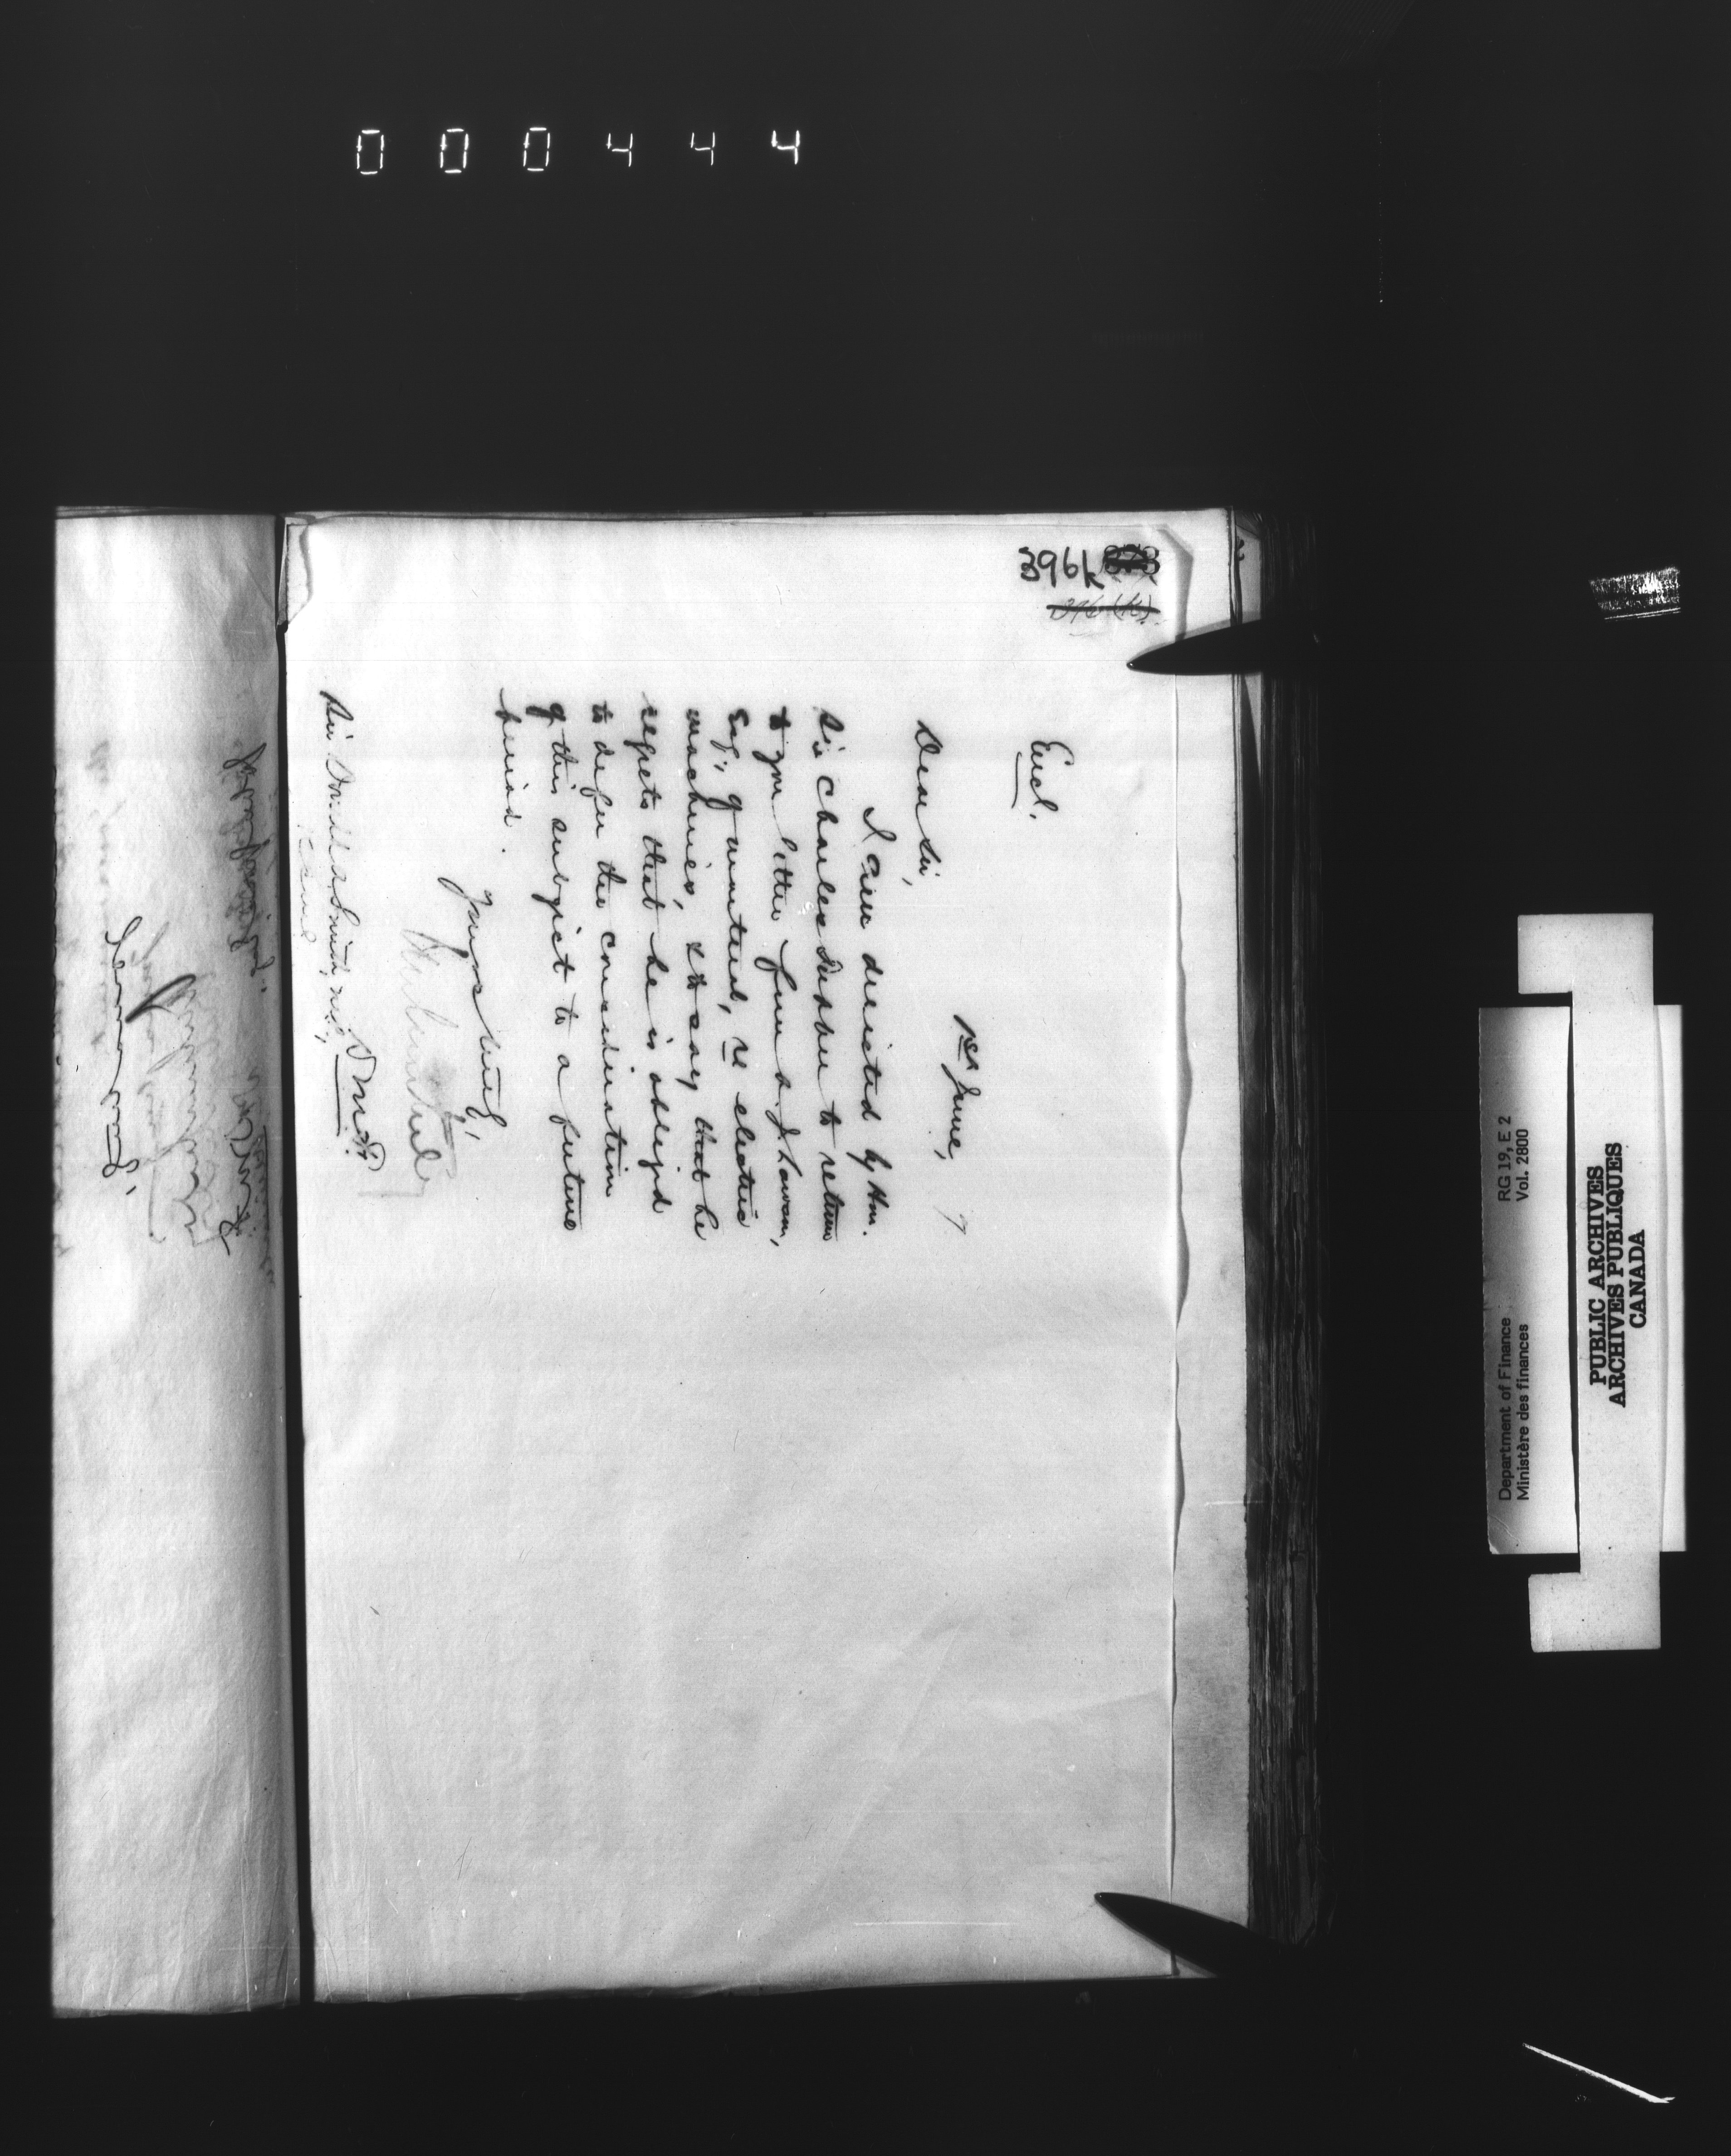 000444
396k
Encl.
1st June, 7
Dear Sir,
I am directed by Hon.
Sir Charles Tupper to return
to you letter from A. J. Lawson,
Esq., of Montreal, re electric
machines, & to say that he
regrets that he is obliged
to defer the consideration
of this subject to a future
period.
Yours truly,
Sir Donald A. Smith, M.P.,
PUBLIC ARCHIVES
ARCHIVES PUBLIQUES
CANADA
Department of Finance RG 19, E 2
Ministère des finances Vol. 2800